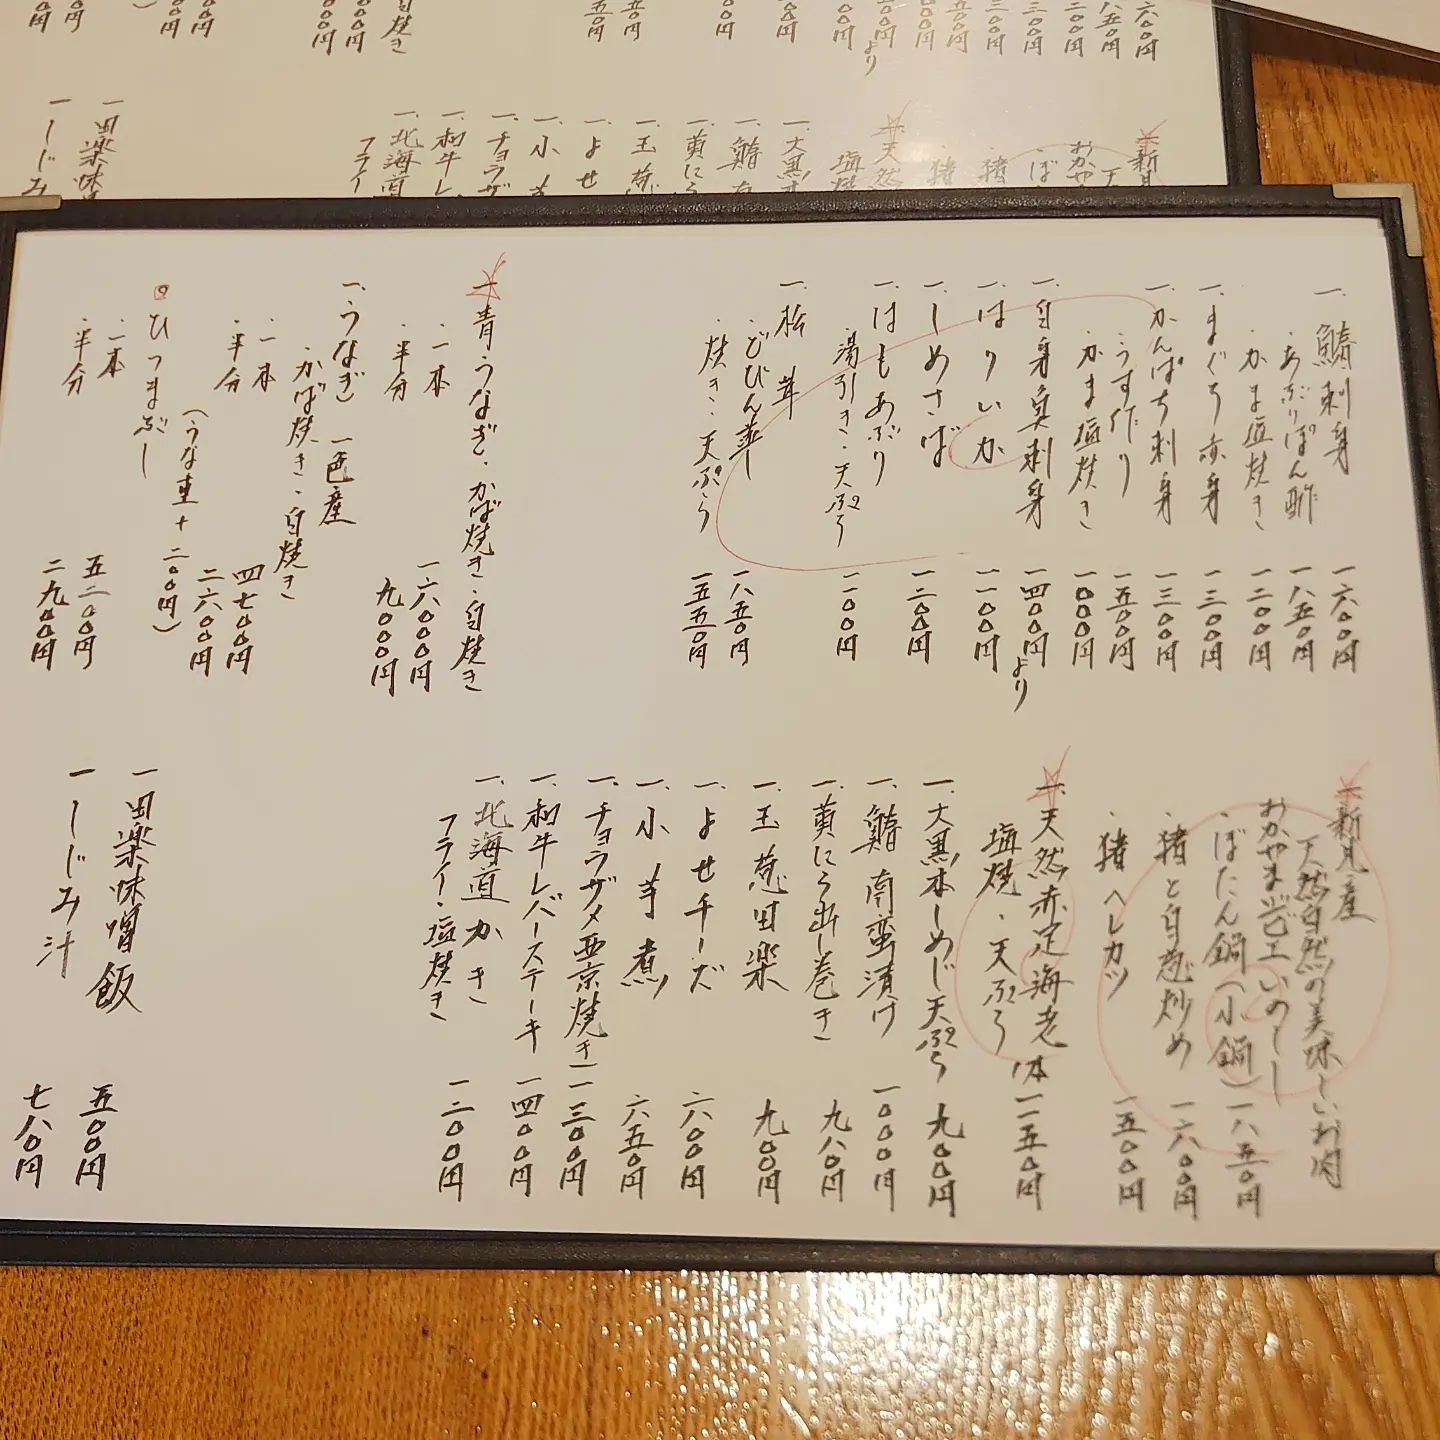 一、鰆刺身 一六〇〇円
・あぶりぽん酢 一八五〇円
・かま塩焼き 一二〇〇円
一、まぐろ赤身 一三〇〇円
一、かんぱち刺身 一三〇〇円
・うす作り 一五〇〇円
・かま塩焼き 一〇〇〇円
一、白身魚刺身 一四〇〇円より
一、はりいか 一一〇〇円
一、しめさば 一二〇〇円
一、はもあぶり
湯引き・天ぷら 一一〇〇円
一、松茸
・どびん蒸し 一八五〇円
焼き・天ぷら 一五五〇円
一、青うなぎ、かば焼き・白焼き
・一本 一六〇〇〇円
・半分 九〇〇〇円
一、うなぎ 一色産
・かば焼き・白焼き
・一本 四七〇〇円
・半分 二六〇〇円
(うな重+二〇〇円)
ひつまぶし
・一本 五二〇〇円
・半分 二九〇〇円
新見産
天然自然の美味しいお肉
おかやまジビエいのしし
・ぼたん鍋(小鍋) 一八五〇円
・猪と白葱炒め 一六〇〇円
・猪ヘレカツ 一五〇〇円
一、天然赤足海老一本 一一五〇円
塩焼・天ぷら
一、大黒本しめじ天ぷら 九〇〇円
一、鰆南蛮漬け 一〇〇〇円
一、黄にら出し巻き 九八〇円
一、玉葱田楽 九〇〇円
一、よせチーズ 六〇〇円
一、小芋煮 六五〇円
一、チョウザメ西京焼き 一三〇〇円
一、和牛レバーステーキ 一四〇〇円
一、北海道かき
フライ・塩焼き 一二〇〇円
一田楽味噌飯 五〇〇円
一しじみ汁 七八〇円